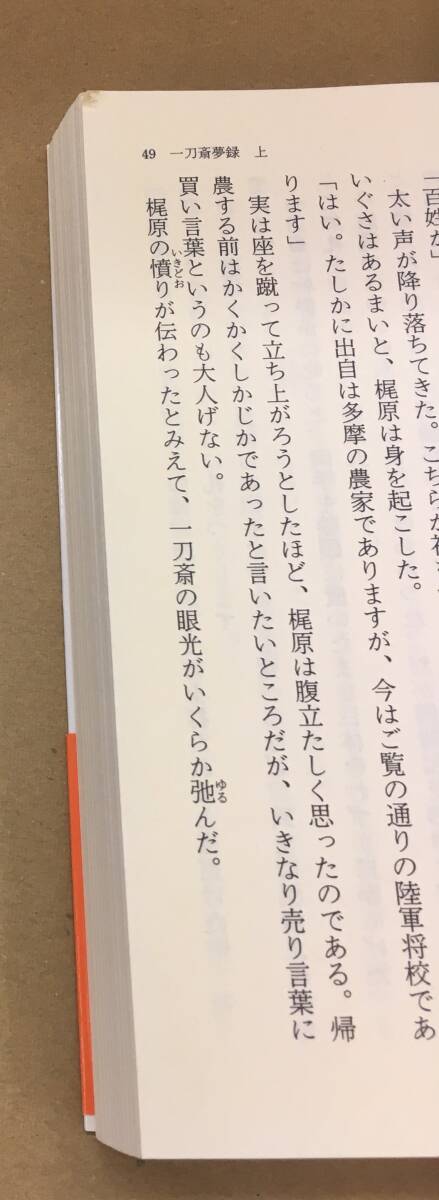 49 一刀斎夢録 上
「百姓か」
太い声が降り落ちてきた。こちらが
いぐさはあるまいと、梶原は身を起こした。
「はい。たしかに出自は多摩の農家でありますが、今はご覧の通りの陸軍将校であ
ります」
実は座を蹴って立ち上がろうとしたほど、梶原は腹立たしく思ったのである。帰
農する前はかくかくしかじかであったと言いたいところだが、いきなり売り言葉に
買い言葉というのも大人げない。
梶原の憤りが伝わったとみえて、一刀斎の眼光がいくらか弛んだ。
いきどお
ゆる